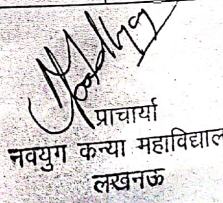 प्राचार्या
नवयुग कन्या महाविद्याल
लखनऊ